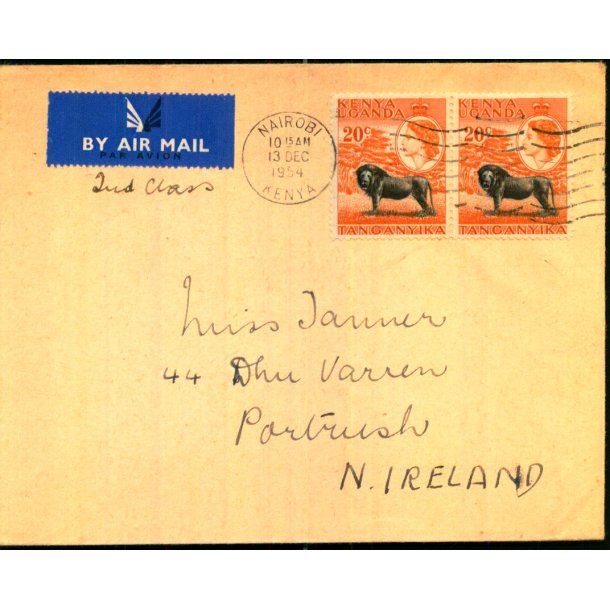 BY AIR MAIL
PAR AVION
2nd Class
NAIROBI
10 15 AM
13 DEC
1954
KENYA
KENYA
UGANDA
20c
TANGANYIKA
KENYA
UGANDA
20c
TANGANYIKA
Miss Tanner
44 Dhu Varren
Portrush
N. IRELAND